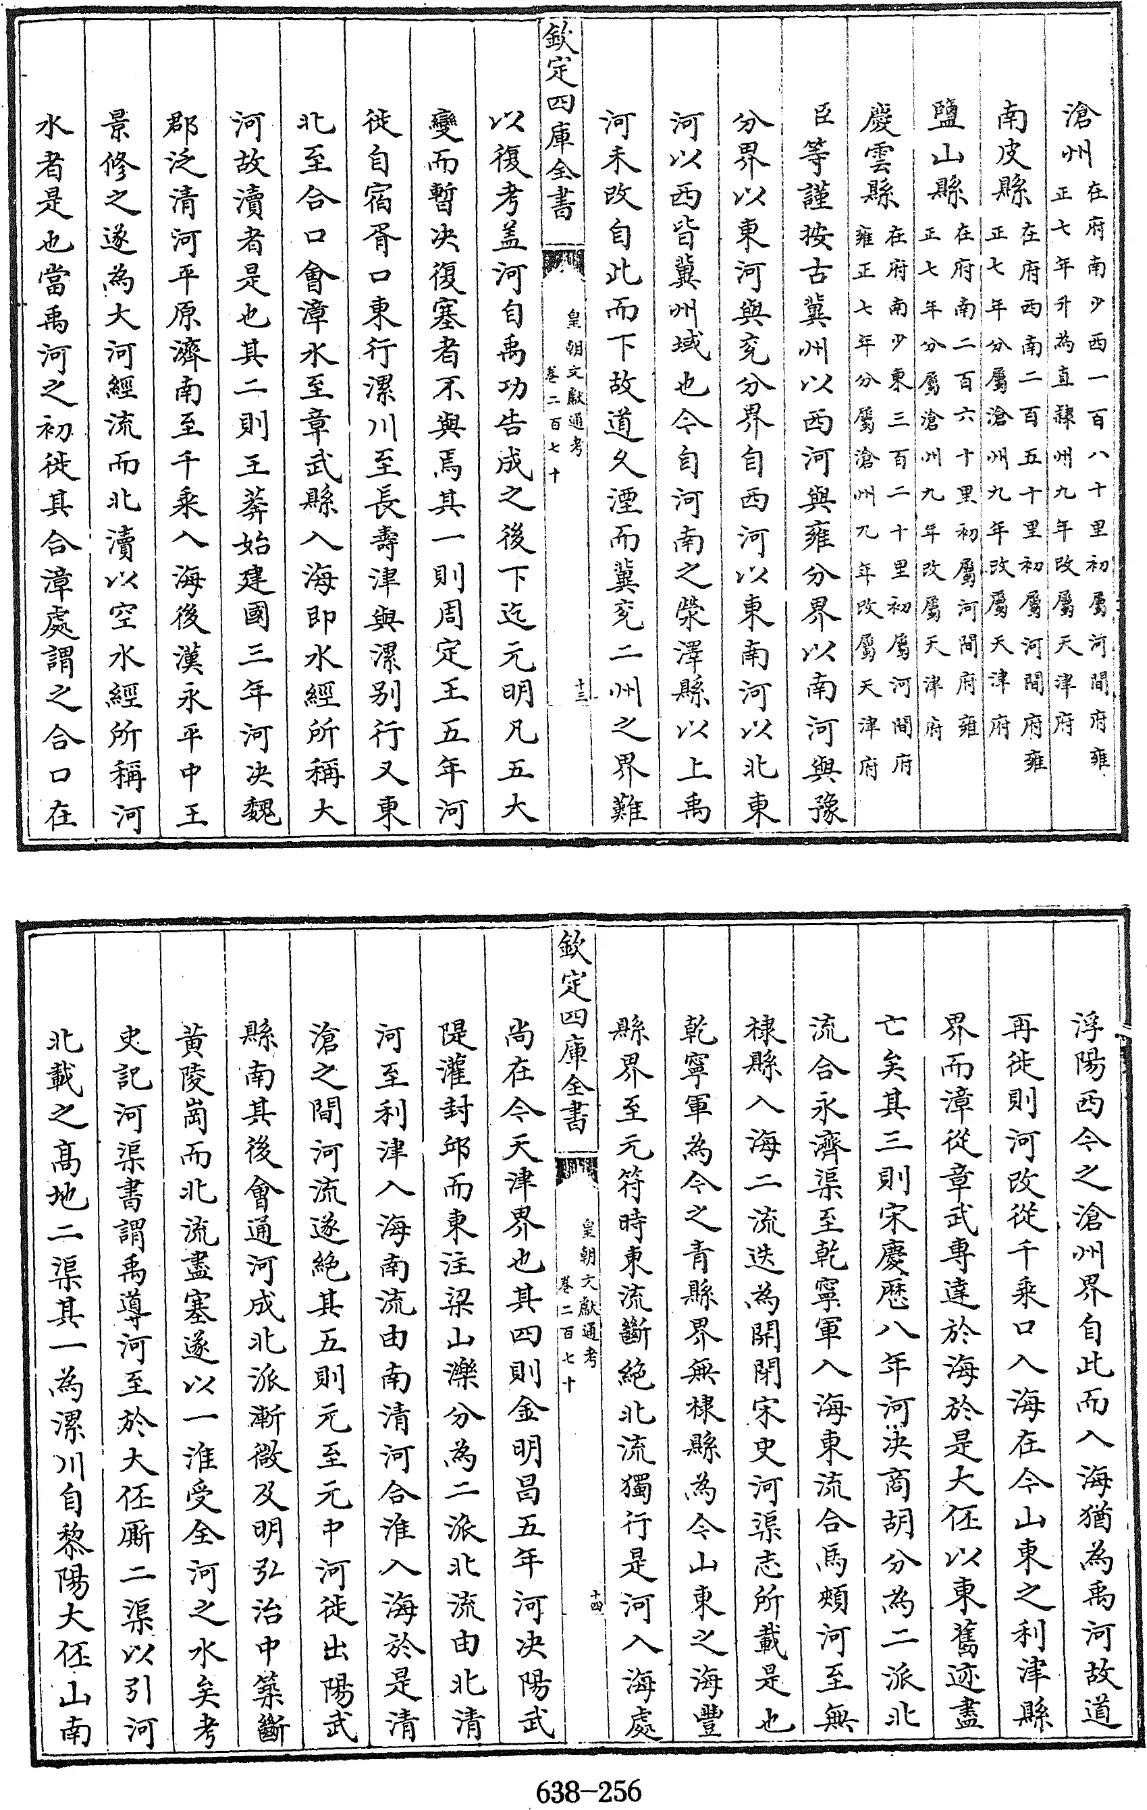 滄州在府南少西一百八十里初屬河間府雍正七年升為直隸州九年改屬天津府
南皮縣在府西南二百五十里初屬河間府雍正七年分屬滄州九年改屬天津府
鹽山縣在府南二百六十里初屬河間府雍正七年分屬滄州九年改屬天津府
慶雲縣在府南少東三百二十里初屬河間府雍正七年分屬滄州九年改屬天津府
臣等謹按古冀州以西河與雍分界以南河與豫
分界以東河與兗分界自西河以東南河以北東
河以西皆冀州域也今自河南之滎澤縣以上禹
河未改自此而下故道久湮而冀兗二州之界難
欽定四庫全書
皇朝文獻通考
卷二百七十
十三
以復考蓋河自禹功告成之後下迄元明凡五大
變而暫決復塞者不與焉其一則周定王五年河
徙自宿胥口東行漯川至長壽津與漯别行又東
北至合口會漳水至章武縣入海即水經所稱大
河故瀆者是也其二則王莽始建國三年河決魏
郡泛清河平原濟南至千乘入海後漢永平中王
景修之遂為大河經流而北瀆以空水經所稱河
水者是也當禹河之初徙其合漳處謂之合口在
浮陽西今之滄州界自此而入海猶為禹河故道
再徙則河改從千乘口入海在今山東之利津縣
界而漳從章武專達於海於是大伾以東舊迹盡
亡矣其三則宋慶歷八年河決商胡分為二派北
流合永濟渠至乾寧軍入海東流合馬頰河至無
棣縣入海二流迭為開閉宋史河渠志所載是也
乾寧軍為今之青縣界無棣縣為今山東之海豐
縣界至元符時東流斷絶北流獨行是河入海處
欽定四庫全書
皇朝文獻通考
卷二百七十
十四
尚在今天津界也其四則金明昌五年河決陽武
隄灌封邱而東注梁山濼分為二派北流由北清
河至利津入海南流由南清河合淮入海於是清
滄之間河流遂絶其五則元至元中河徙出陽武
縣南其後會通河成北派漸微及明弘治中築斷
黄陵岡而北流盡塞遂以一淮受全河之水矣考
史記河渠書謂禹導河至於大伾厮二渠以引河
北載之高地二渠其一為漯川自黎陽大伾山南
638-256